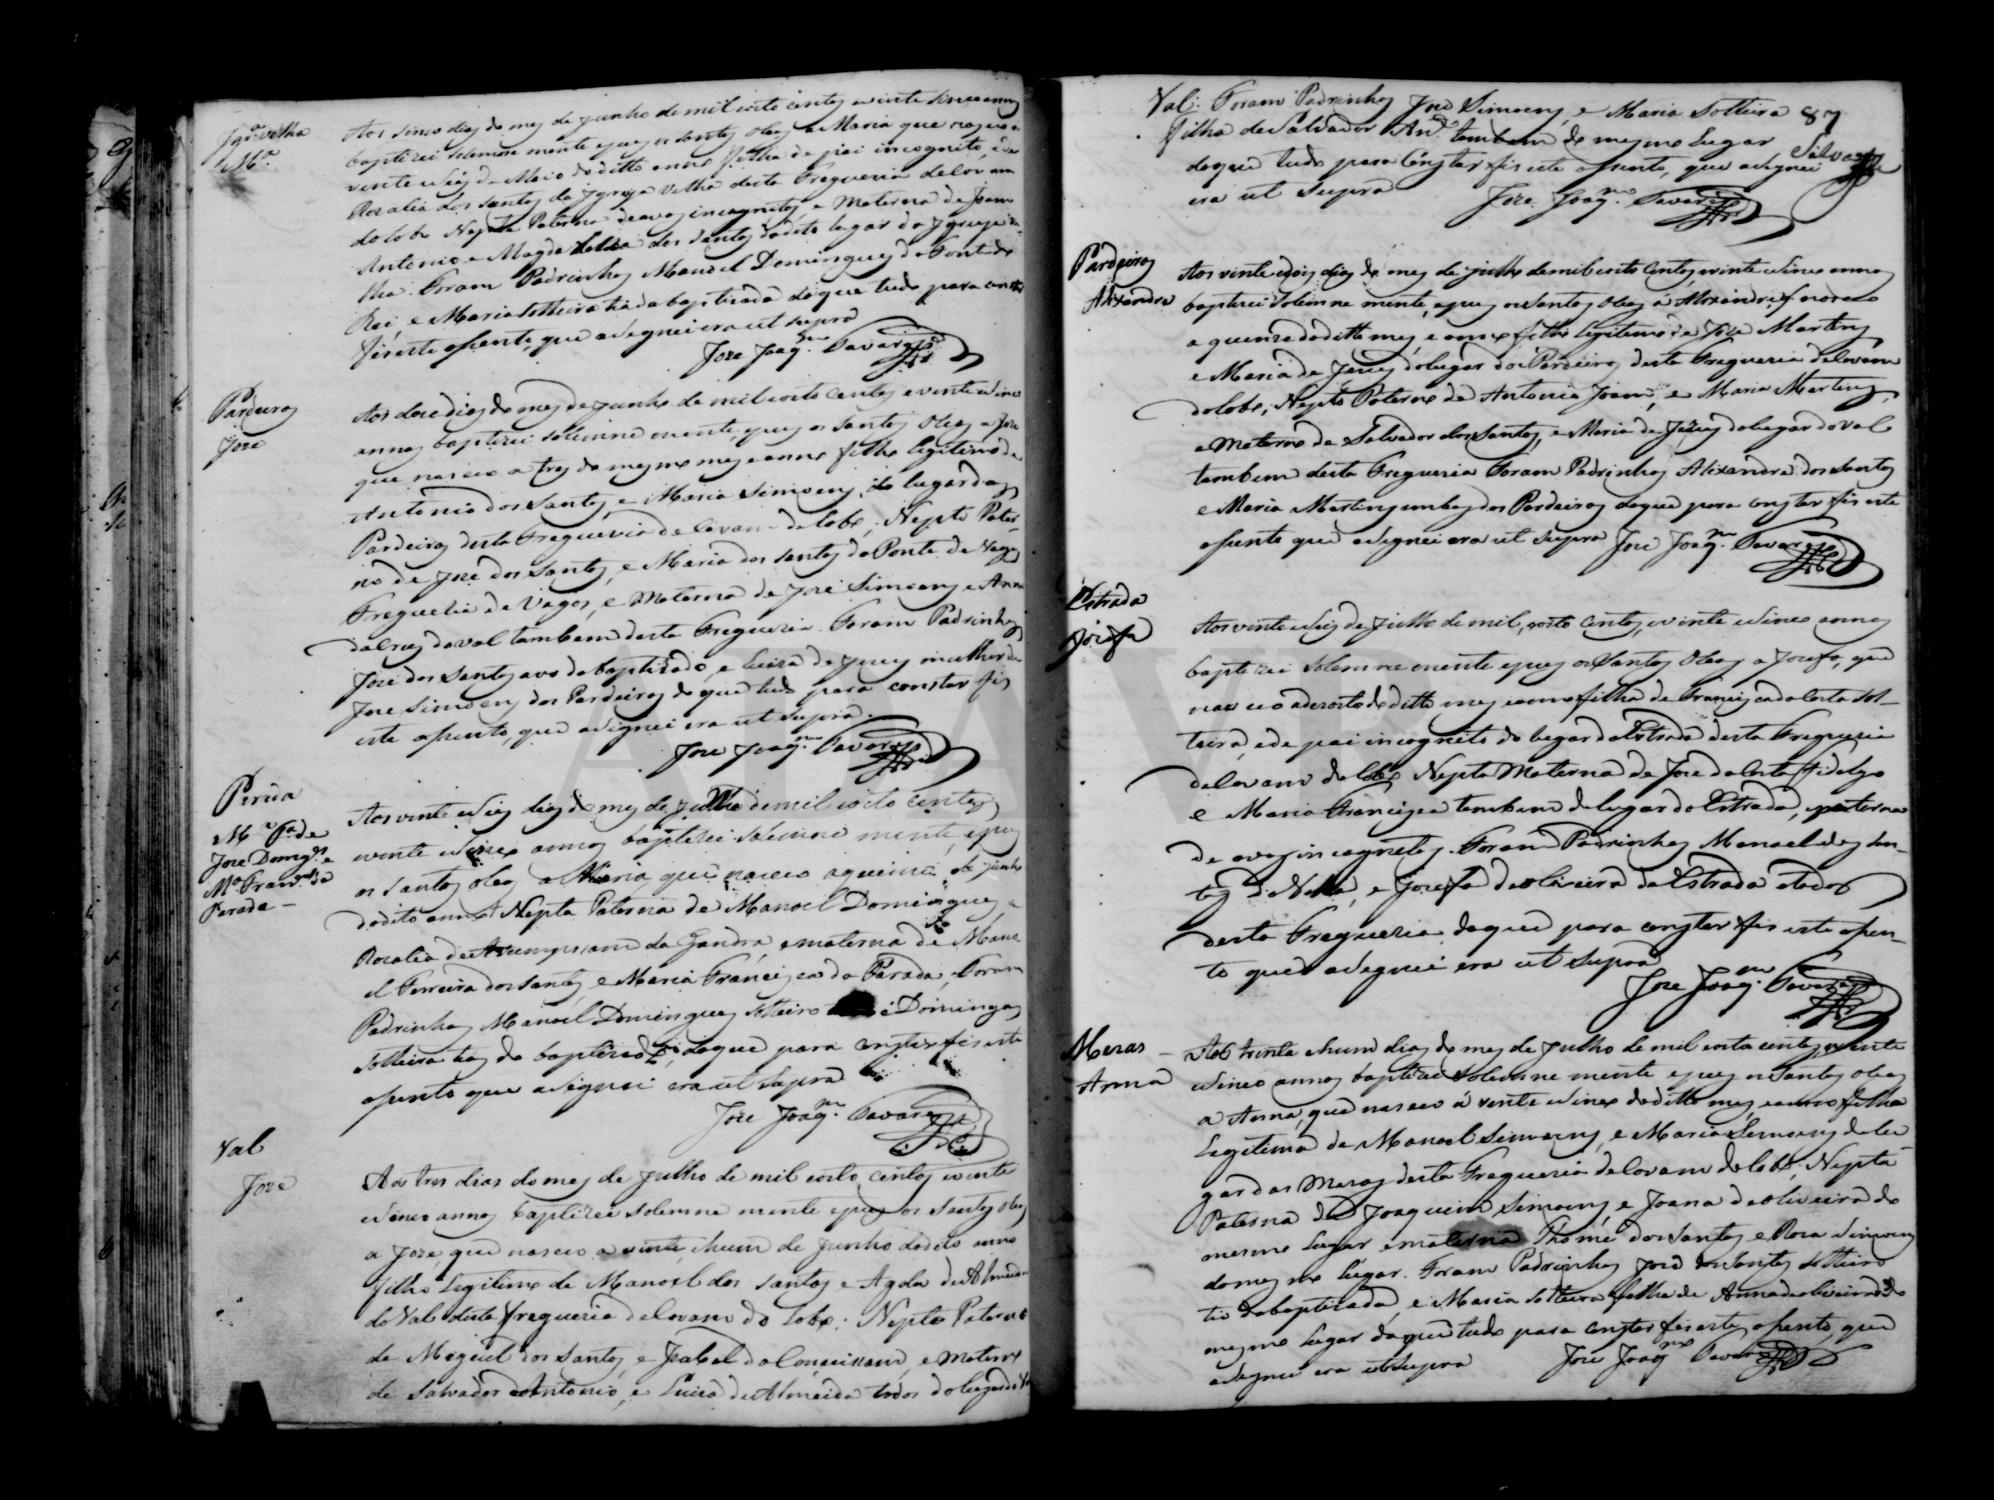 Igrª velha
Mª
Aos sinco dias do mes de junho de mil oito centos e vinte sinco annos
baptizei solemne mente e puz os santos oleos a Maria que nasceo a
vente e seis de Maio do ditto anno filha de pai incognito, e de
Rozalia dos santos da Igreja velha desta Freguezia de Covam
do lobo Nepta Paterna de avos incognitos, e Materna de Joam
Antonio e Magdalena dos santos do dito lugar da Igreja ve
lha. Foram Padrinhos Manoel Domingues da Fonte do
Rei, e Maria solteira tia da baptizada do que tudo para constar
fis este asento, que asignei era ut supra
Joze Joaqm Tavares
Pardeiros
Joze
Aos doze dias do mes de junho de mil oito centos e vinte e sinco
annos baptizei solemne mente, e puz os santos oleos a Joze
que nasceo a tres do mesmo mes e anno filho legitimo de
Antonio dos santos, e Maria Simoens, do lugar dos
Pardeiros desta Freguezia de Covam do lobo; Nepto Pater-
no de Joze dos santos, e Maria dos santos da Ponte de Vagos
Freguezia de Vagos, e Materno de Joze Simoens e Anna
da Cruz do val tambem desta Freguezia. Foram Padrinhos
Joze dos santos avo do baptizado, e Luiza de Jezus mulher de
Joze Simoens dos Pardeiros do que tudo para constar fis
este asento, que asignei era ut supra.
Joze Joaqm Tavares
Perúa
Mª Fª de
Joze Domgs e
Mª Franca da
Parada -
Aos vinte e seis dias do mes de julho de mil oito centos
e vinte e sinco annos baptizei solemne mente, e puz
os santos oleos a Maria, que nasceo a quinze de junho
do dito anno Nepta Paterna de Manoel Domingues, e
Rozalia de Asumpssam da Gandra, e materna de Mano
el Ferreira dos santos, e Maria Francisca da Parada, Foram
Padrinhos Manoel Domingues solteiro e Domingas
solteira tios da baptizada, do que para constar fis este
asento que asignei era ut supra
Joze Joaqm Tavares
Val
Joze
Aos tres dias do mes de Julho de mil oito centos e vinte
e sinco annos baptizei solemne mente e puz os santos oleos
a Joze que nasceo a vinte, e hum de Junho do dito anno
filho legitimo de Manoel dos santos e Agda de Almeida
do Val desta freguezia de Covam do Lobo; Nepto Paterno
de Miguel dos santos, e Izabel da Conseissam, e Materno
de Salvador Antonio, e Luiza de Almeida todos do lugar do Val
87
Val: Foram Padrinhos Joze Simoens, e Maria Solteira
filha de Salvador Anto tambem do mesmo lugar
do que tudo para constar fis este asento, que asignei
era ut supra
Joze Joaqm Tavares
Pardeiros
Alixandre
Aos vinte e dois dias do mes de julho de mil oito centos e vinte e sinco annos
baptizei solemne mente, e puz os santos oleos a Alixandre, q nasceo
a quinze do ditto mes, e anno filho legitimo de Joze Martins
e Maria de Jezus do lugar dos Pardeiros desta Freguezia de Covam
do lobo, Nepto Paterno de Antonio Joam, e Maria Martins,
e Materno de Salvador dos santos, e Maria de Jezus do lugar do Val
tambem desta Freguezia Foram Padrinhos Alixandre dos santos
e Maria Martins ambos dos Pardeiros do que para constar fis este
asento que asignei era ut supra Joze Joaqm Tavares
Estrada
Jozefa
Aos vinte e seis de Julho de mil, oito centos, e vinte e sinco annos
baptizei solemne mente e puz os Santos Oleos a Jozefa, que
nasceo a dezoito do ditto mes e anno filha de Francisca da Costa sol-
teira, e de pai incognito do lugar da Estrada desta Freguezia
de Covam do lobo Nepta Materna de Joze da Costa fidalgo
e Maria Francisca tambem do lugar da Estrada, e paterna
de avos incognitos. Foram Padrinhos Manoel dos San-
tos, e Jozefa de oliveira da Estrada todos
desta Freguezia do que para constar fis este asen-
to que asignei era ut supra
Joze Joaqm Tavares
Mesas -
Anna
Aos trinta e hum dias do mes de Julho de mil oito centos e vinte
e sinco annos baptizei solemne mente e puz os santos oleos
a Anna, que nasceo a vente e sinco do ditto mes, e anno filha
legitima de Manoel Simoens, e Maria Simoens do lu-
gar das Mesas desta Freguezia de Covam do lobo; Nepta
Paterna de Joaquim Simoens, e Joana de oliveira do
mesmo lugar e materna Thomé dos santos e Roza Simoens
do mesmo lugar. Foram Padrinhos Joze dos santos solteiro
tio da baptizada, e Maria solteira filha de Anna de oliveira do
mesmo lugar do que tudo para constar fis este asento, que
asignei era ut supra Joze Joaqm Tavares